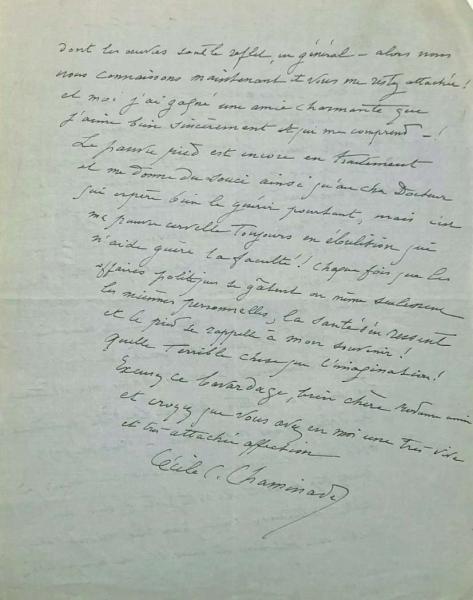 dont les œuvres sont le reflet, en général – alors nous
nous connaissons maintenant et vous me restez attachée !
et moi j'ai gagné une amie charmante que
j'aime bien sincèrement et qui me comprend – !
Le pauvre pied est encore en traitement
et me donne du souci ainsi qu'au cher Docteur
qui espère bien le guérir pourtant, mais c'est
ma pauvre cervelle toujours en ébullition qui
n'aide guère la faculté ! Chaque fois que les
affaires politiques se gâtent ou même seulement
les miennes personnelles, la santé s'en ressent
et le pied se rappelle à mon souvenir !
quelle terrible chose que l'imagination !
Excusez ce bavardage, bien chère Madame amie
et croyez que vous avez en moi une très vive
et très attachée affection
Cécile C. Chaminade